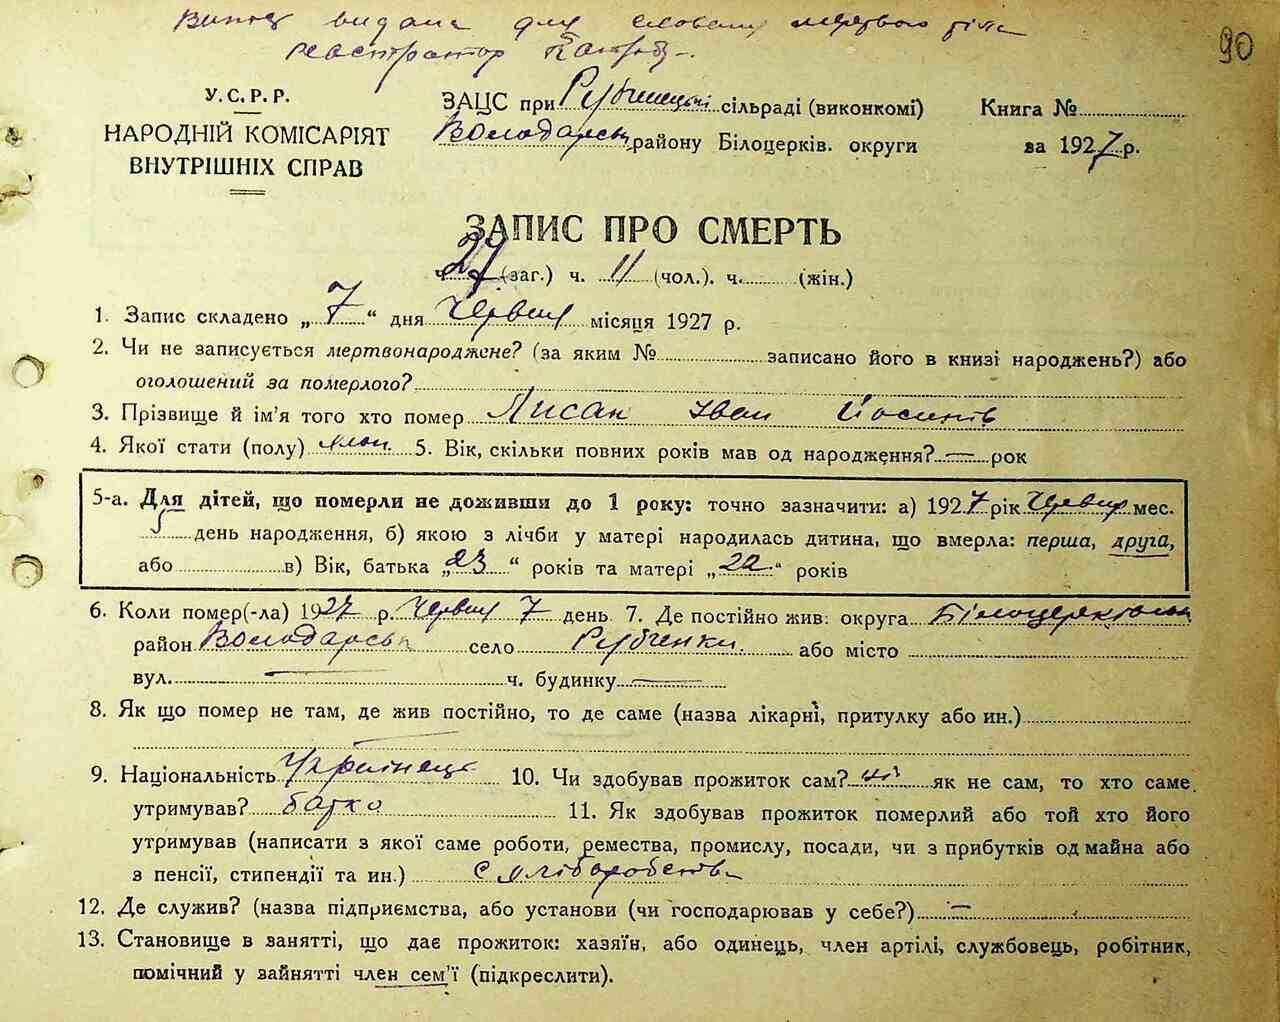 Випис видана для сховання мертвого тіла
реєстратор
90
У.С.Р.Р.
НАРОДНІЙ КОМІСАРІЯТ
ВНУТРІШНІХ СПРАВ
ЗАЦС при Рубченецькі сільраді (виконкомі)
Володарськ району Білоцерків. округи
Книга №
за 1927 р.
ЗАПИС ПРО СМЕРТЬ
ч. 27 (заг.) ч. 11 (чол.). ч. (жін.)
1. Запис складено „ 7 “ дня Червня місяця 1927 р.
2. Чи не записується мертвонароджене? (за яким № записано його в книзі народжень?) або
оголошений за померлого?
3. Прізвище й ім'я того хто помер Лисак Іван Йосипів
4. Якої стати (полу) чол. 5. Вік, скільки повних років мав од народження? — рок
5-а. Для дітей, що померли не доживши до 1 року: точно зазначити: а) 1927 рік Червня мес.
5 день народження, б) якою з лічби у матері народилась дитина, що вмерла: перша, друга,
або в) Вік, батька „ 23 “ років та матері „ 22 “ років
6. Коли помер(-ла) 1927 р. Червня 7 день 7. Де постійно жив: округа Білоцерківськ
район Володарськ село Рубченки або місто
вул. — ч. будинку —
8. Як що помер не там, де жив постійно, то де саме (назва лікарні, притулку або ин.)
—
9. Національність Українець 10. Чи здобував прожиток сам? ні як не сам, то хто саме
утримував? батко 11. Як здобував прожиток померлий або той хто його
утримував (написати з якої саме роботи, ремества, промислу, посади, чи з прибутків од майна або
з пенсії, стипендії та ин.) с хліборобств
12. Де служив? (назва підприємства, або установи (чи господарював у себе?) —
13. Становище в занятті, що дає прожиток: хазяїн, або одинець, член артілі, службовець, робітник,
помічний у зайнятті член сем'ї (підкреслити).